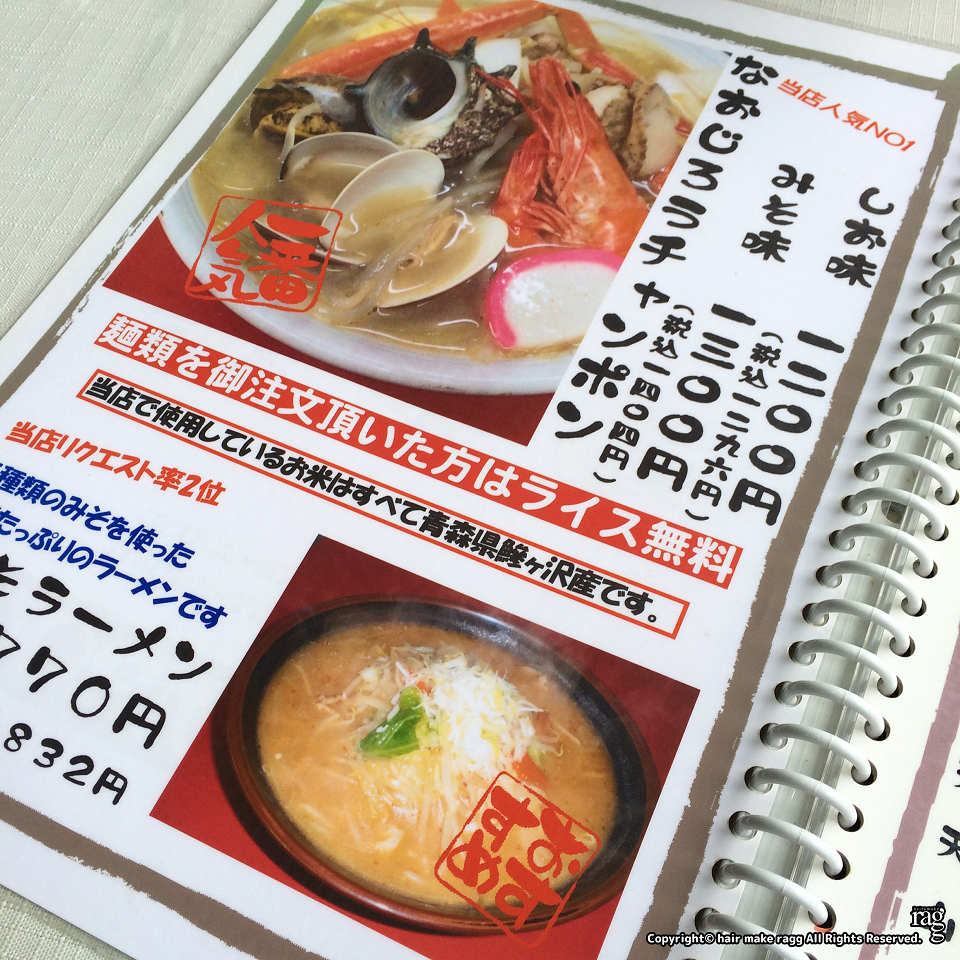 当店人気NO1
なおじろうチャンポン
しお味 一二〇〇円
(税込一二九六円)
みそ味 一三〇〇円
(税込一四〇四円)
一番
人気
麺類を御注文頂いた方はライス無料
当店で使用しているお米はすべて青森県鰺ヶ沢産です。
当店リクエスト率2位
種類のみそを使った
たっぷりのラーメンです
そラーメン
770円
832円
おすすめ
天
ragg
Copyright© hair make ragg All Rights Reserved.